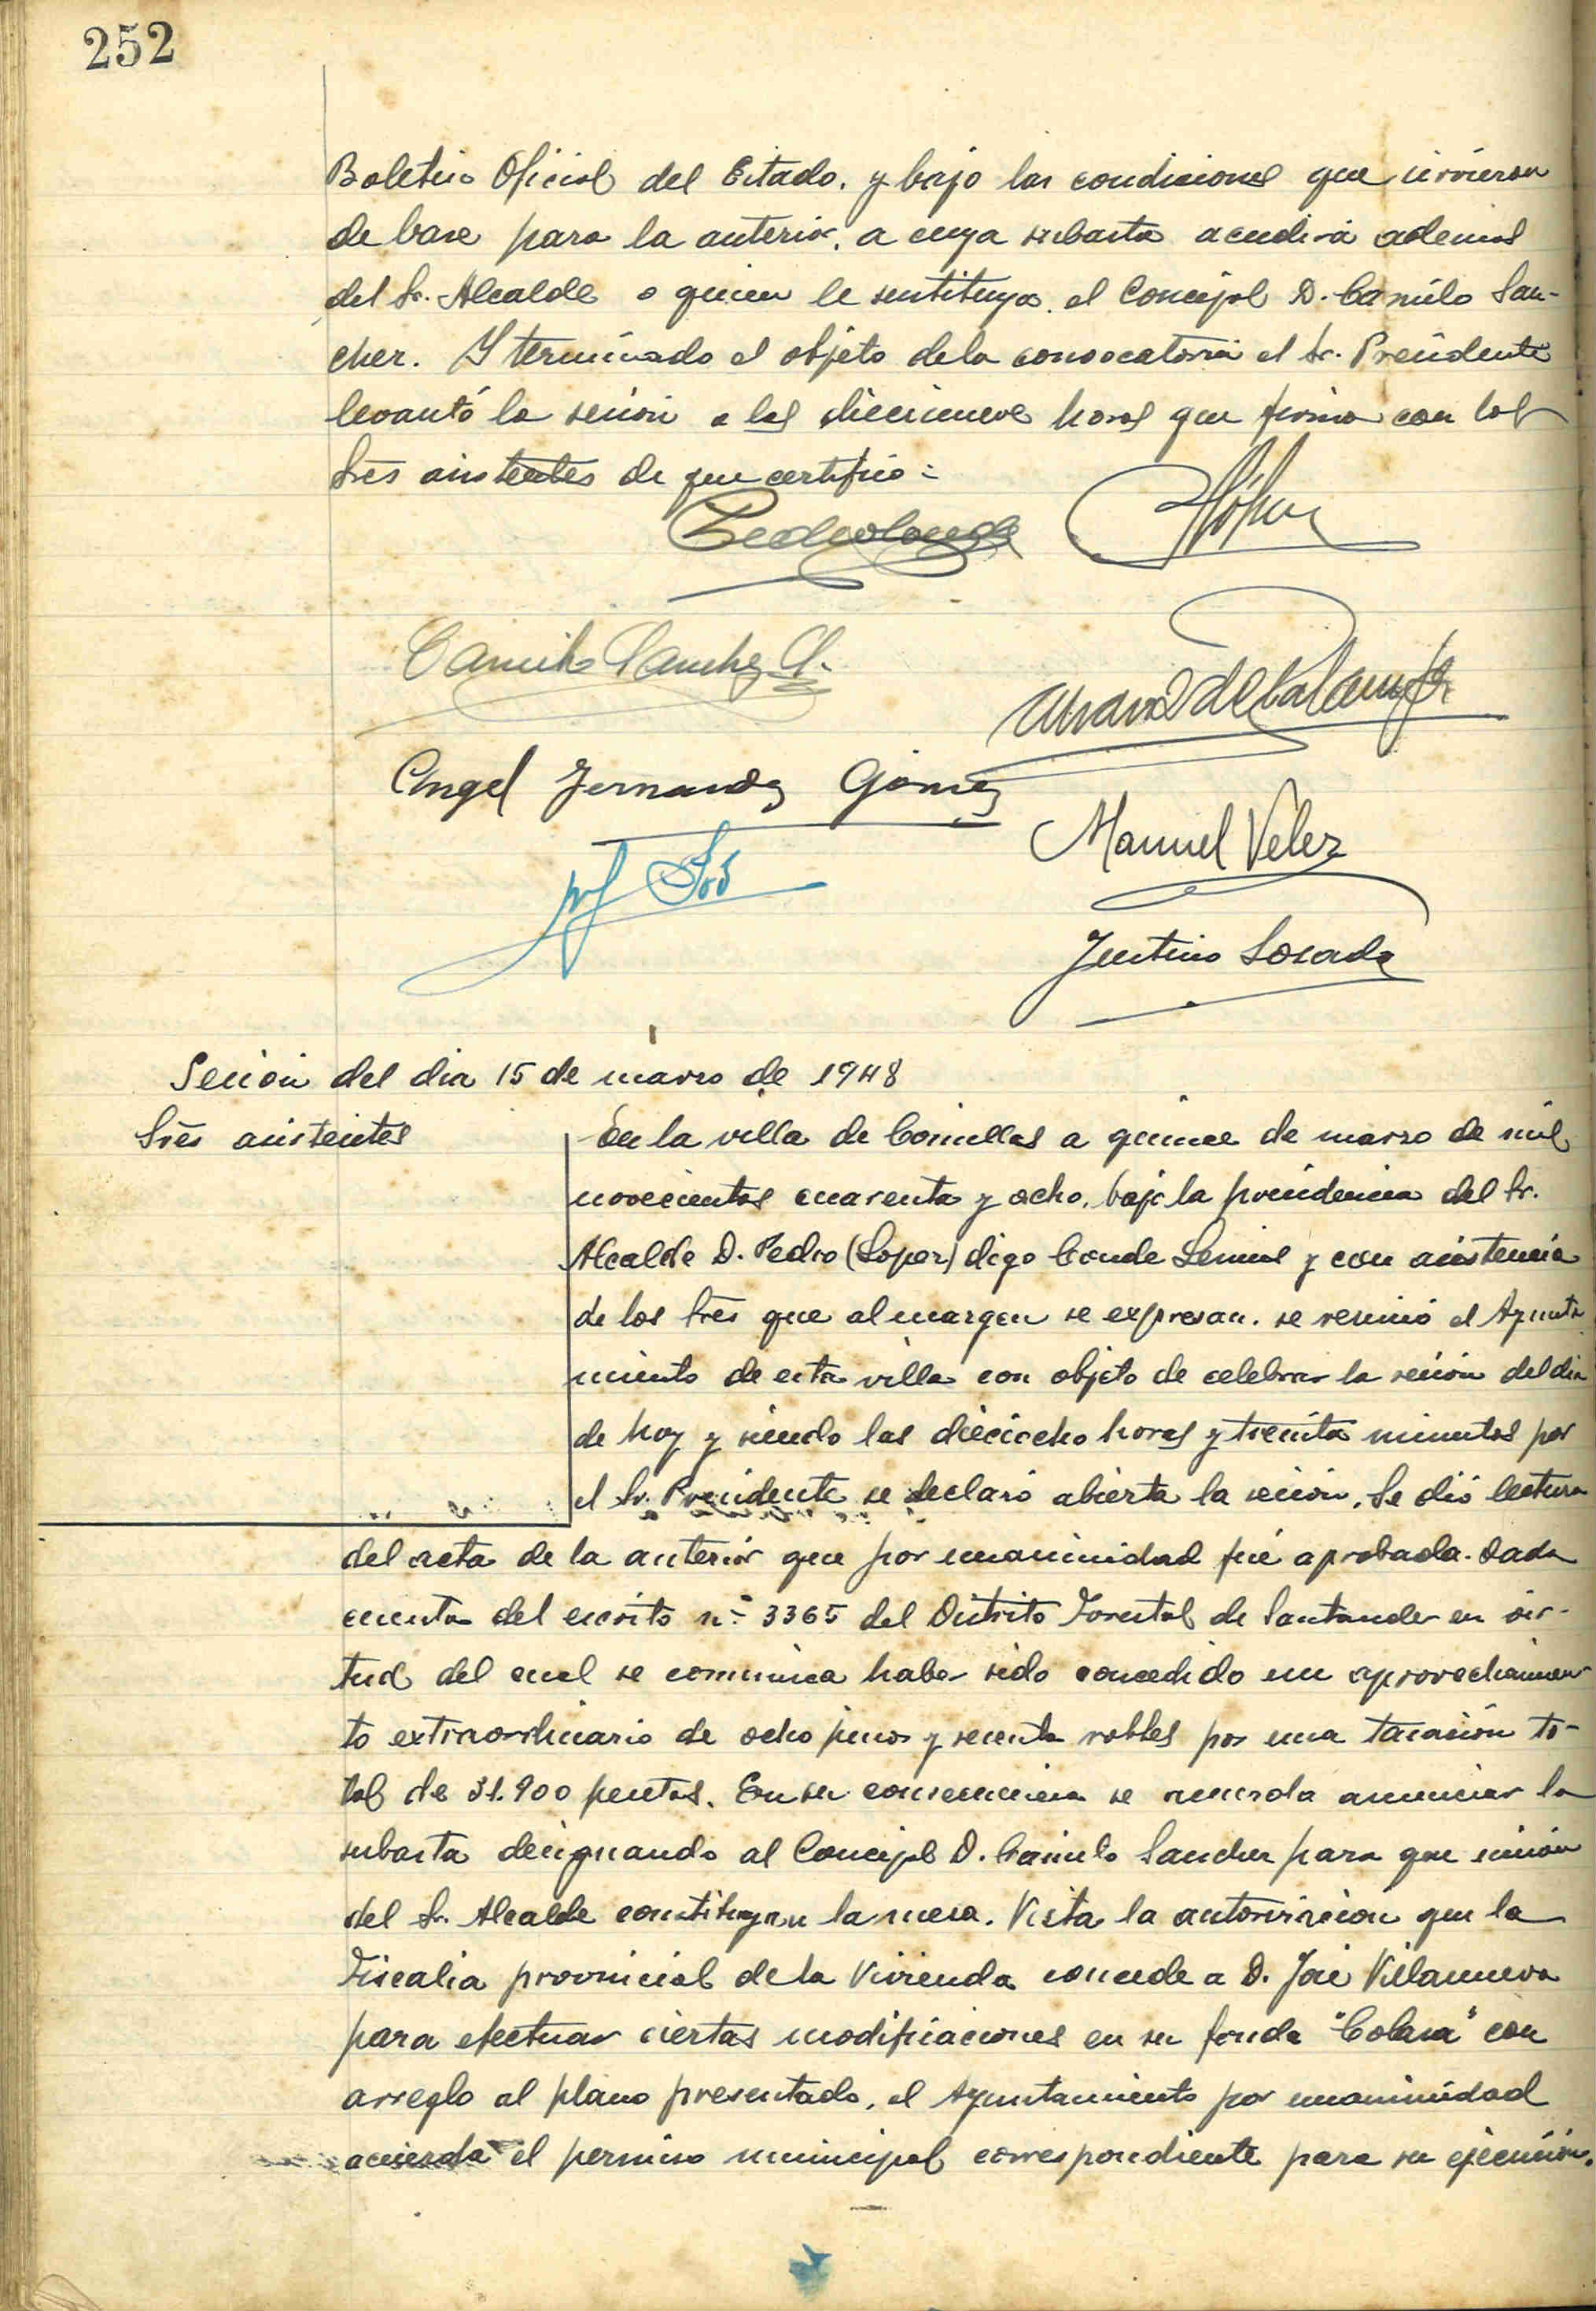 252
Boletin Oficial del Estado. y bajo las condiciones que sirvieron
de base para la anterior, a cuya subasta acudirá además
del Sr. Alcalde o quien le sustituya. el Concejal D. Camilo San-
chez. Y terminado el objeto de la convocatoria el Sr. Presidente
levantó la sesión a las diecinueve horas que firma con los
Sres asistentes de que certifico:
Pedro Conde
Camilo Sanchez
Angel Fernandez Gomez
Manuel Velez
Justino Losada
Sesión del dia 15 de marzo de 1948
Sres asistentes
En la villa de Comillas a quince de marzo de mil
novecientos cuarenta y ocho. bajo la presidencia del Sr.
Alcalde D. Pedro (Lopez) digo Conde Lemus y con asistencia
de los Sres que al margen se expresan. se reunió el Ayunta
miento de esta villa con objeto de celebrar la sesión del dia
de hoy y siendo las dieciocho horas y treinta minutos por
el Sr. Presidente se declaró abierta la sesión. Se dió lectura
del acta de la anterior que por unanimidad fué aprobada. Dada
cuenta del escrito nº 3365 del Distrito Forestal de Santander en vir-
tud del cual se comunica haber sido concedido un aprovechamien-
to extraordinario de ocho pinos y sesenta robles por una tasación to-
tal de 31.900 pesetas. En su consecuencia se acuerda anunciar la
subasta designando al Concejal D. Camilo Sanchez para que unión
del Sr. Alcalde constituyan la mesa. Vista la autorización que la
Fiscalia provincial de la Vivienda concede a D. José Villanueva
para efectuar ciertas modificaciones en su fonda "Colasa" con
arreglo al plano presentado, el Ayuntamiento por unanimidad
acuerda el permiso municipal correspondiente para su ejecución.